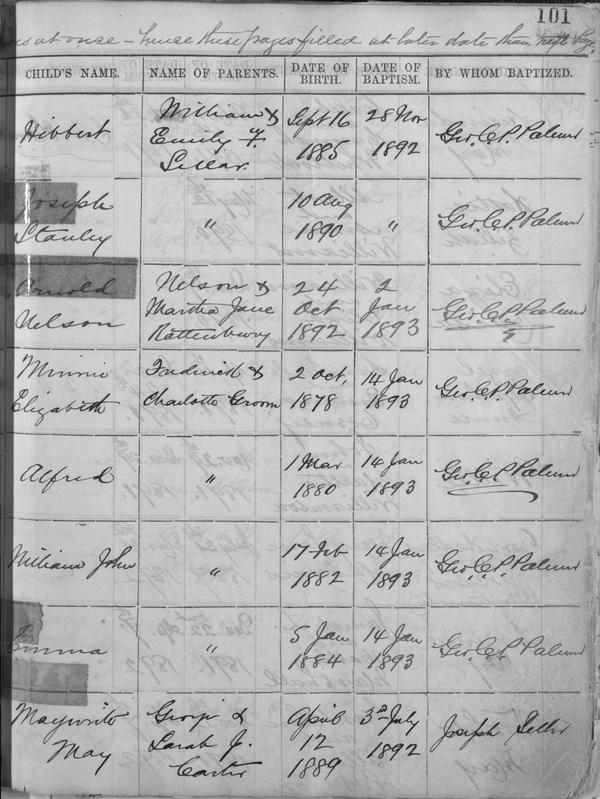 101
at once - hence these pages filled at later date than
CHILD'S NAME. NAME OF PARENTS. DATE OF BIRTH. DATE OF BAPTISM. BY WHOM BAPTIZED.
Hibbert William & Emily F. Sellar. Sept 16 1885 28 Nov 1892 Geo. C. P. Palmer
Joseph Stanley " 10 Aug 1890 " Geo. C. P. Palmer
Arnold Nelson Nelson & Martha Jane Rattenbury 24 Oct 1892 2 Jan 1893 Geo. C. P. Palmer
Minnie Elizabeth Frederick & Charlotte Groom 2 Oct, 1878 14 Jan 1893 Geo. C. P. Palmer
Alfred " 1 Mar 1880 14 Jan 1893 Geo. C. P. Palmer
William John " 17 Feb 1882 14 Jan 1893 Geo. C. P. Palmer
Emma " 5 Jan 1884 14 Jan 1893 Geo. C. P. Palmer
May George & Sarah J. Carter April 12 1889 3rd July 1892 Joseph